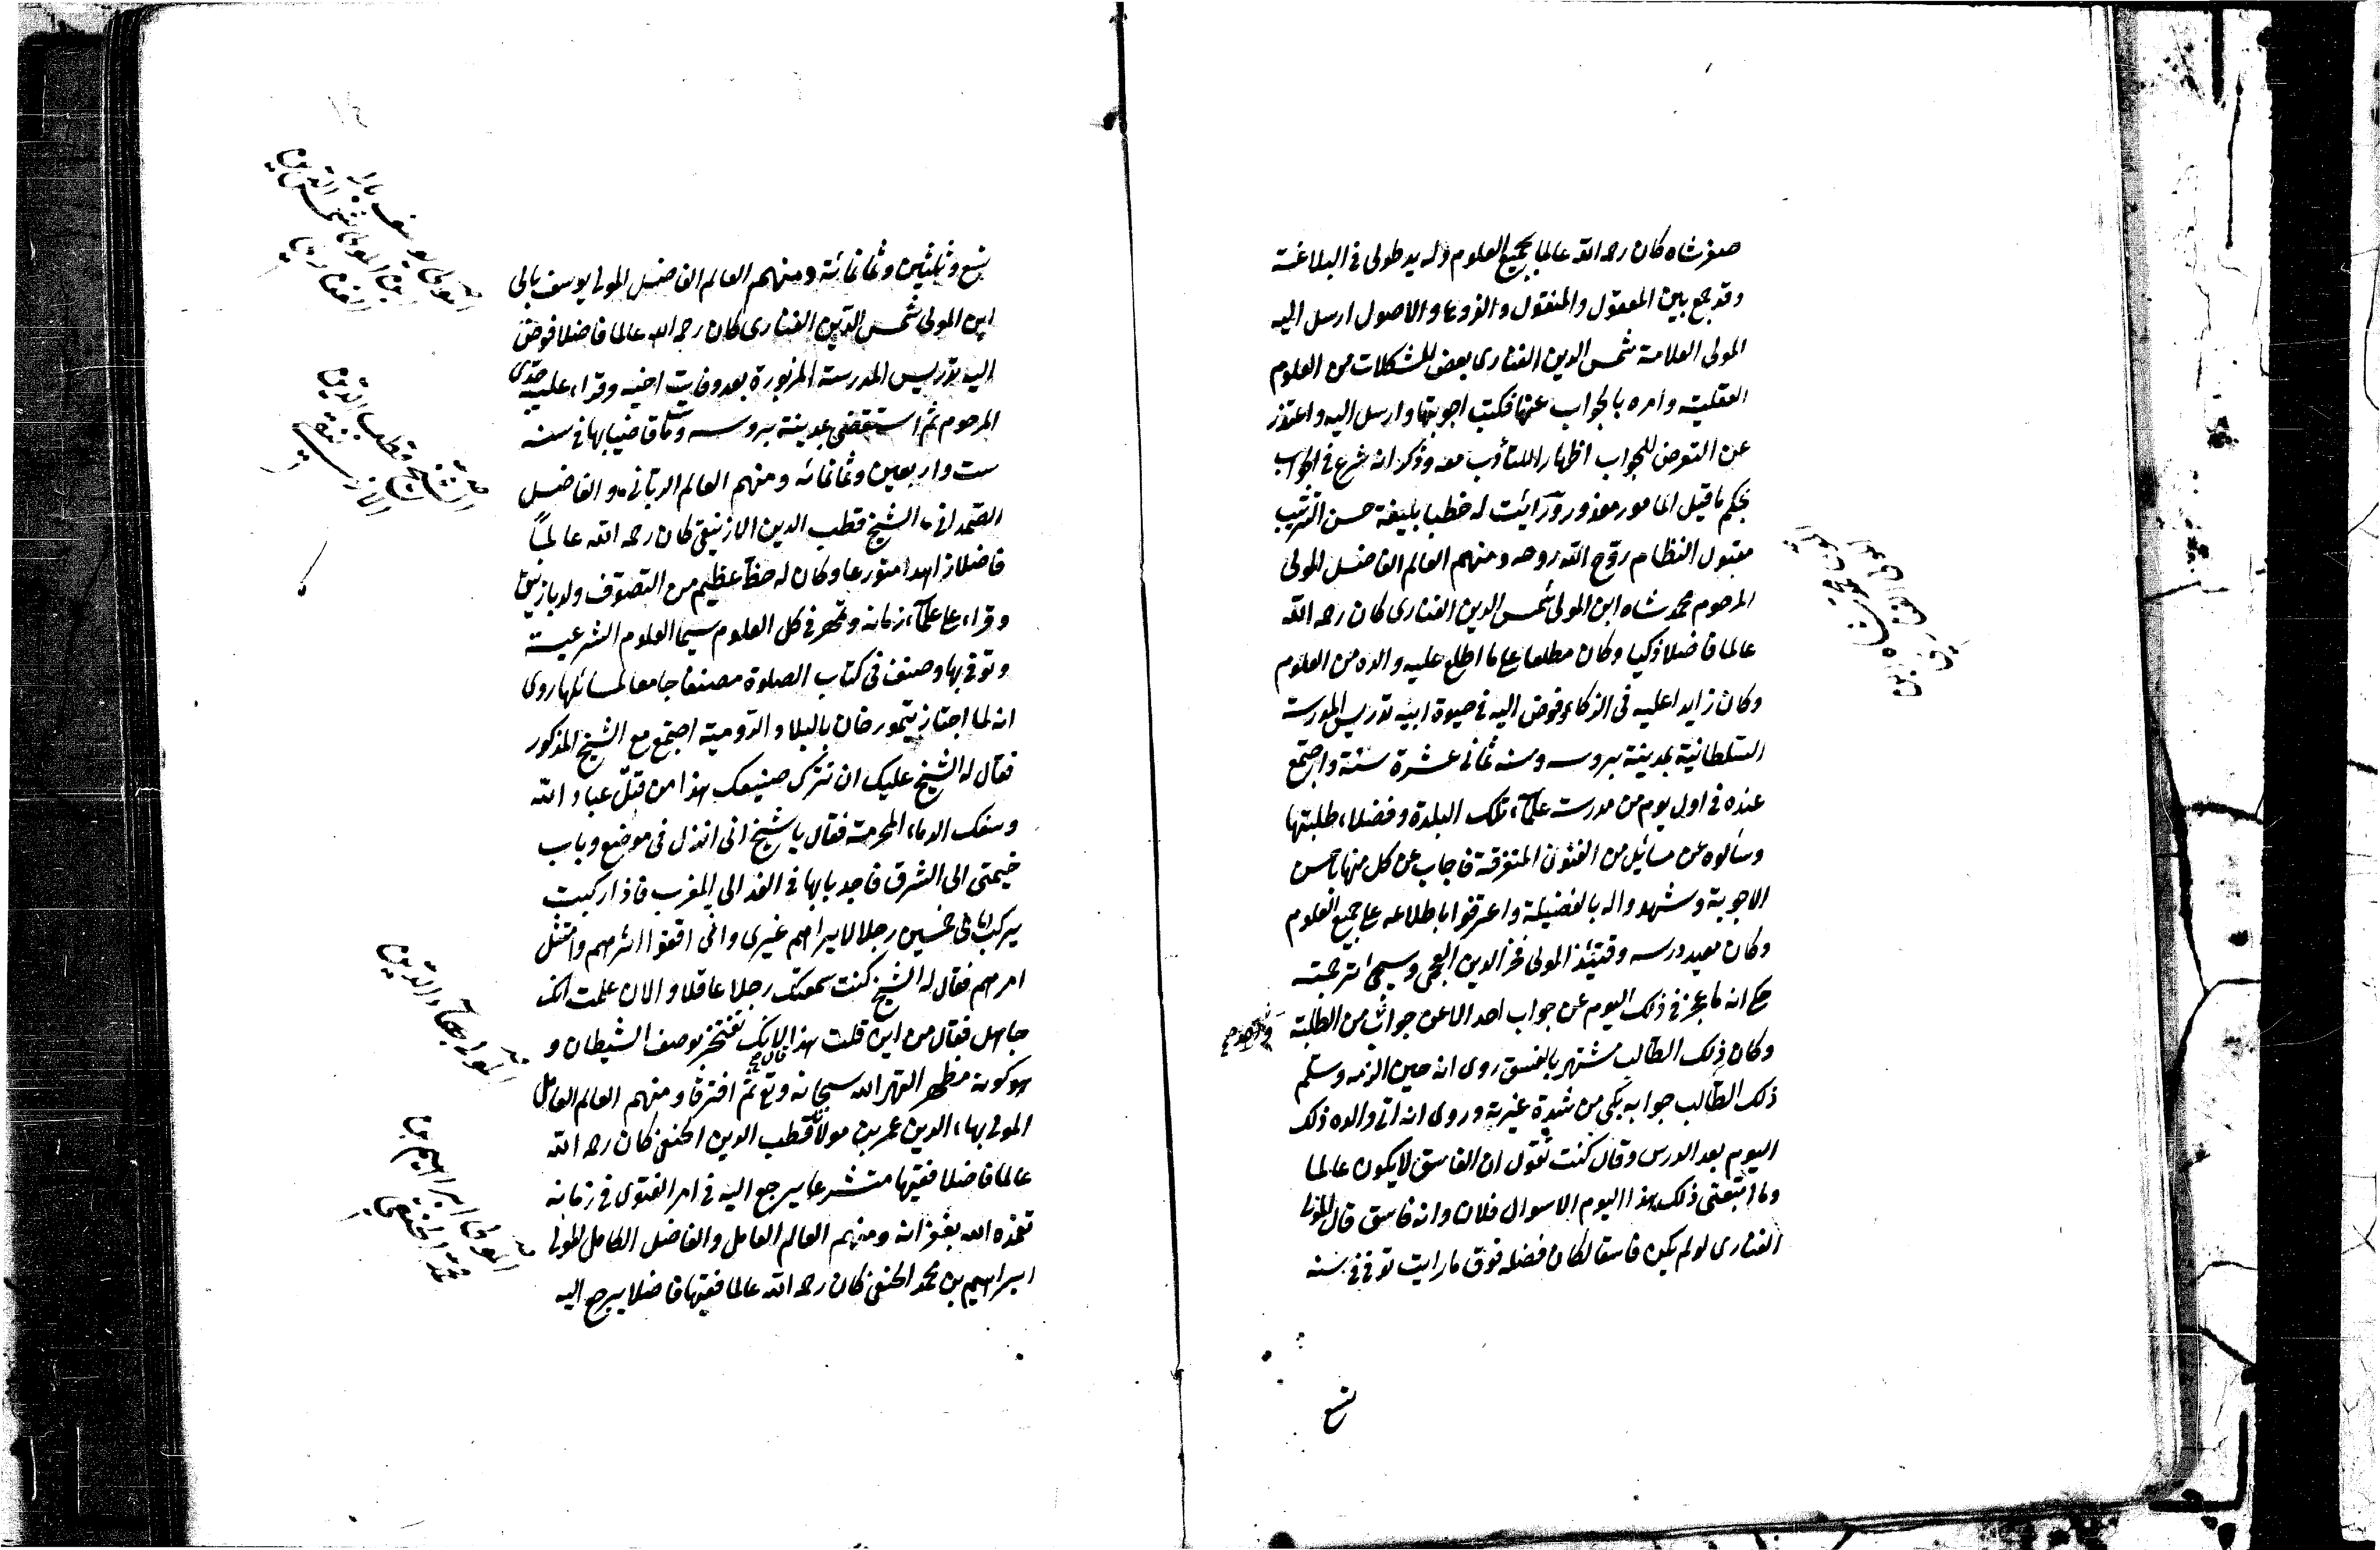 صفرشاه كان رحمه الله عالما بجميع العلوم وله يد طولى فى البلاغة
وقد جمع بين المعقول والمنقول والفروع والاصول ارسل اليه
المولى العلامة شمس الدين الفنارى بعض المشكلات من العلوم
العقلية وامره بالجواب عنها فكتب اجوبتها وارسل اليه واعتذر
عن التعرض للجواب اظهارا للتأدب معه وذكر انه شرع فى الجواب
بحكم ما قيل المامور معذور ورأيت له خطبا بليغة حسن الترتيب
مقبول النظام روّح الله روحه ومنهم العالم الفاضل المولى
المرحوم محمد شاه ابن المولى شمس الدين الفنارى كان رحمه الله
عالما فاضلا ذكيا وكان مطلعا على ما اطلع عليه والده من العلوم
وكان زايدا عليه فى الذكاء وفوض اليه فى حيوة ابيه تدريس المدرسة
السلطانية بمدينة بروسه وسنه ثمانى عشرة سنة واجتمع
عنده فى اول يوم من درسه علماء تلك البلدة وفضلاء طلبتها
وسألوه عن مسائل من الفنون المتفرقة فاجاب عن كل منها باحسن
الاجوبة وشهدوا له بالفضيلة واعترفوا باطلاعه على جميع العلوم
وكان معيد درسه وقتئذ المولى فخر الدين العجمى وسيجئ ترجمته
حكى انه ما عجز فى ذلك اليوم عن جواب احد الا عن جواب من الطلبة
وكان ذلك الطالب مشتهرا بالفسق روى انه حين الزمه وسلم
ذلك الطالب جوابه بكى من شدة غيرته وروى انه اتى والده ذلك
اليوم بعد الدرس وقال كنت تقول ان الفاسق لا يكون عالما
وما اتبعنى ذلك هذا اليوم الا سوال فلان وانه فاسق قال المولى
الفنارى لو لم يكن فاسقا لكان فضله فوق ما رايت توفى فى سنه
تسع
تسع وثلثين وثمانمائة ومنهم العالم الفاضل المولى يوسف بالى
ابن المولى شمس الدين الفنارى كان رحمه الله عالما فاضلا فوض
اليه تدريس المدرسة المزبورة بعد وفات اخيه وقراء عليه جدى
المرحوم ثم استقضى بمدينة بروسه ومات قاضيا بها فى سنه
ست واربعين وثمانمائه ومنهم العالم الربانى والفاضل
الصمدانى الشيخ قطب الدين الازنيقى كان رحمه الله عالماً
فاضلا زاهدا متورعا وكان له حظ عظيم من التصوف ولد بازنيق
وقراء على علماء زمانه وتمهر فى كل العلوم سيما العلوم الشرعية
وتوفى بها وصنف فى كتاب الصلوة مصنفا جامعا لمسائلها روى
انه لما اجتاز تيمور خان بالبلاد الرومية اجتمع مع الشيخ المذكور
فقال له الشيخ عليك ان تترك صنيعك هذا من قتل عباد الله
وسفك الدماء المحرمة فقال يا شيخ انى انزل فى موضع وباب
خيمتى الى الشرق فاجد بابها فى الغد الى المغرب فاذا ركبت
يركب امامى خمسين رجلا لا يراهم غيرى وانى اقفو اثرهم وامتثل
امرهم فقال له الشيخ كنت سمعتك رجلا عاقلا والان علمت انك
جاهل فقال من اين قلت هذا قال لانك تفتخر بوصف الشيطان و
هو كونه مظهر القهر الله سبحانه وتع ثم افترقا ومنهم العالم العامل
المولى بهاء الدين عمر بن مولانا قطب الدين الحنفى كان رحمه الله
عالما فاضلا فقيها متشرعا يرجع اليه فى امر الفتوى فى زمانه
تغمده الله بغفرانه ومنهم العالم العامل والفاضل الكامل المولى
ابراهيم بن محمد الحنفى كان رحمه الله عالما فقيها فاضلا يرجع اليه
المولى يوسف بالى
ابن المولى شمس الدين
الفنارى
الشيخ قطب الدين
الازنيقى
المولى بهاء الدين
المولى ابراهيم بن
محمد الحنفى